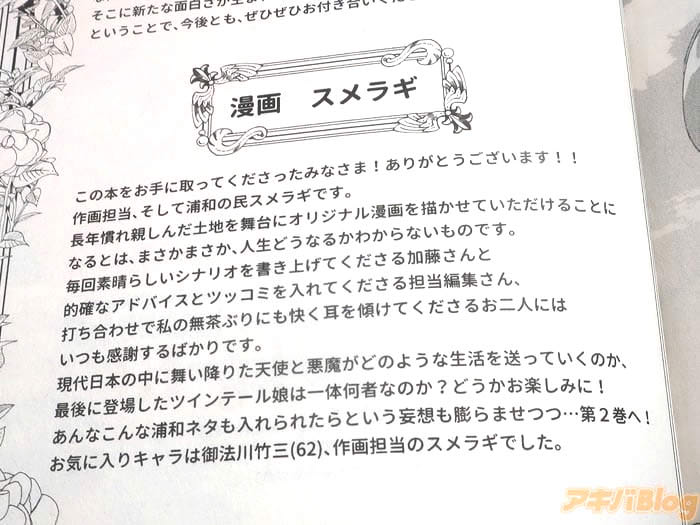 そこに新たな面白さが生まれ
ということで、今後とも、ぜひぜひお付き合いくだ
漫画　スメラギ
この本をお手に取ってくださったみなさま！ありがとうございます！！
作画担当、そして浦和の民スメラギです。
長年慣れ親しんだ土地を舞台にオリジナル漫画を描かせていただけることに
なるとは、まさかまさか、人生どうなるかわからないものです。
毎回素晴らしいシナリオを書き上げてくださる加藤さんと
的確なアドバイスとツッコミを入れてくださる担当編集さん、
打ち合わせで私の無茶ぶりにも快く耳を傾けてくださるお二人には
いつも感謝するばかりです。
現代日本の中に舞い降りた天使と悪魔がどのような生活を送っていくのか、
最後に登場したツインテール娘は一体何者なのか？どうかお楽しみに！
あんなこんな浦和ネタも入れられたらという妄想も膨らませつつ…第２巻へ！
お気に入りキャラは御法川竹三(62)、作画担当のスメラギでした。
アキバBlog